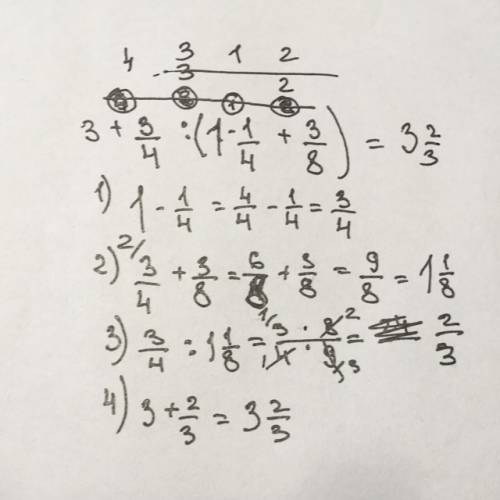 4 3 1 2
3 2
3 + 3/4 : (1 - 1/4 + 3/8) = 3 2/3
1) 1 - 1/4 = 4/4 - 1/4 = 3/4
2) 2/ 3/4 + 3/8 = 6/8 + 3/8 = 9/8 = 1 1/8
3) 3/4 : 1 1/8 = 1/ 3 · 8 2 / 1, 4 · 9 3 = 2/3
4) 3 + 2/3 = 3 2/3